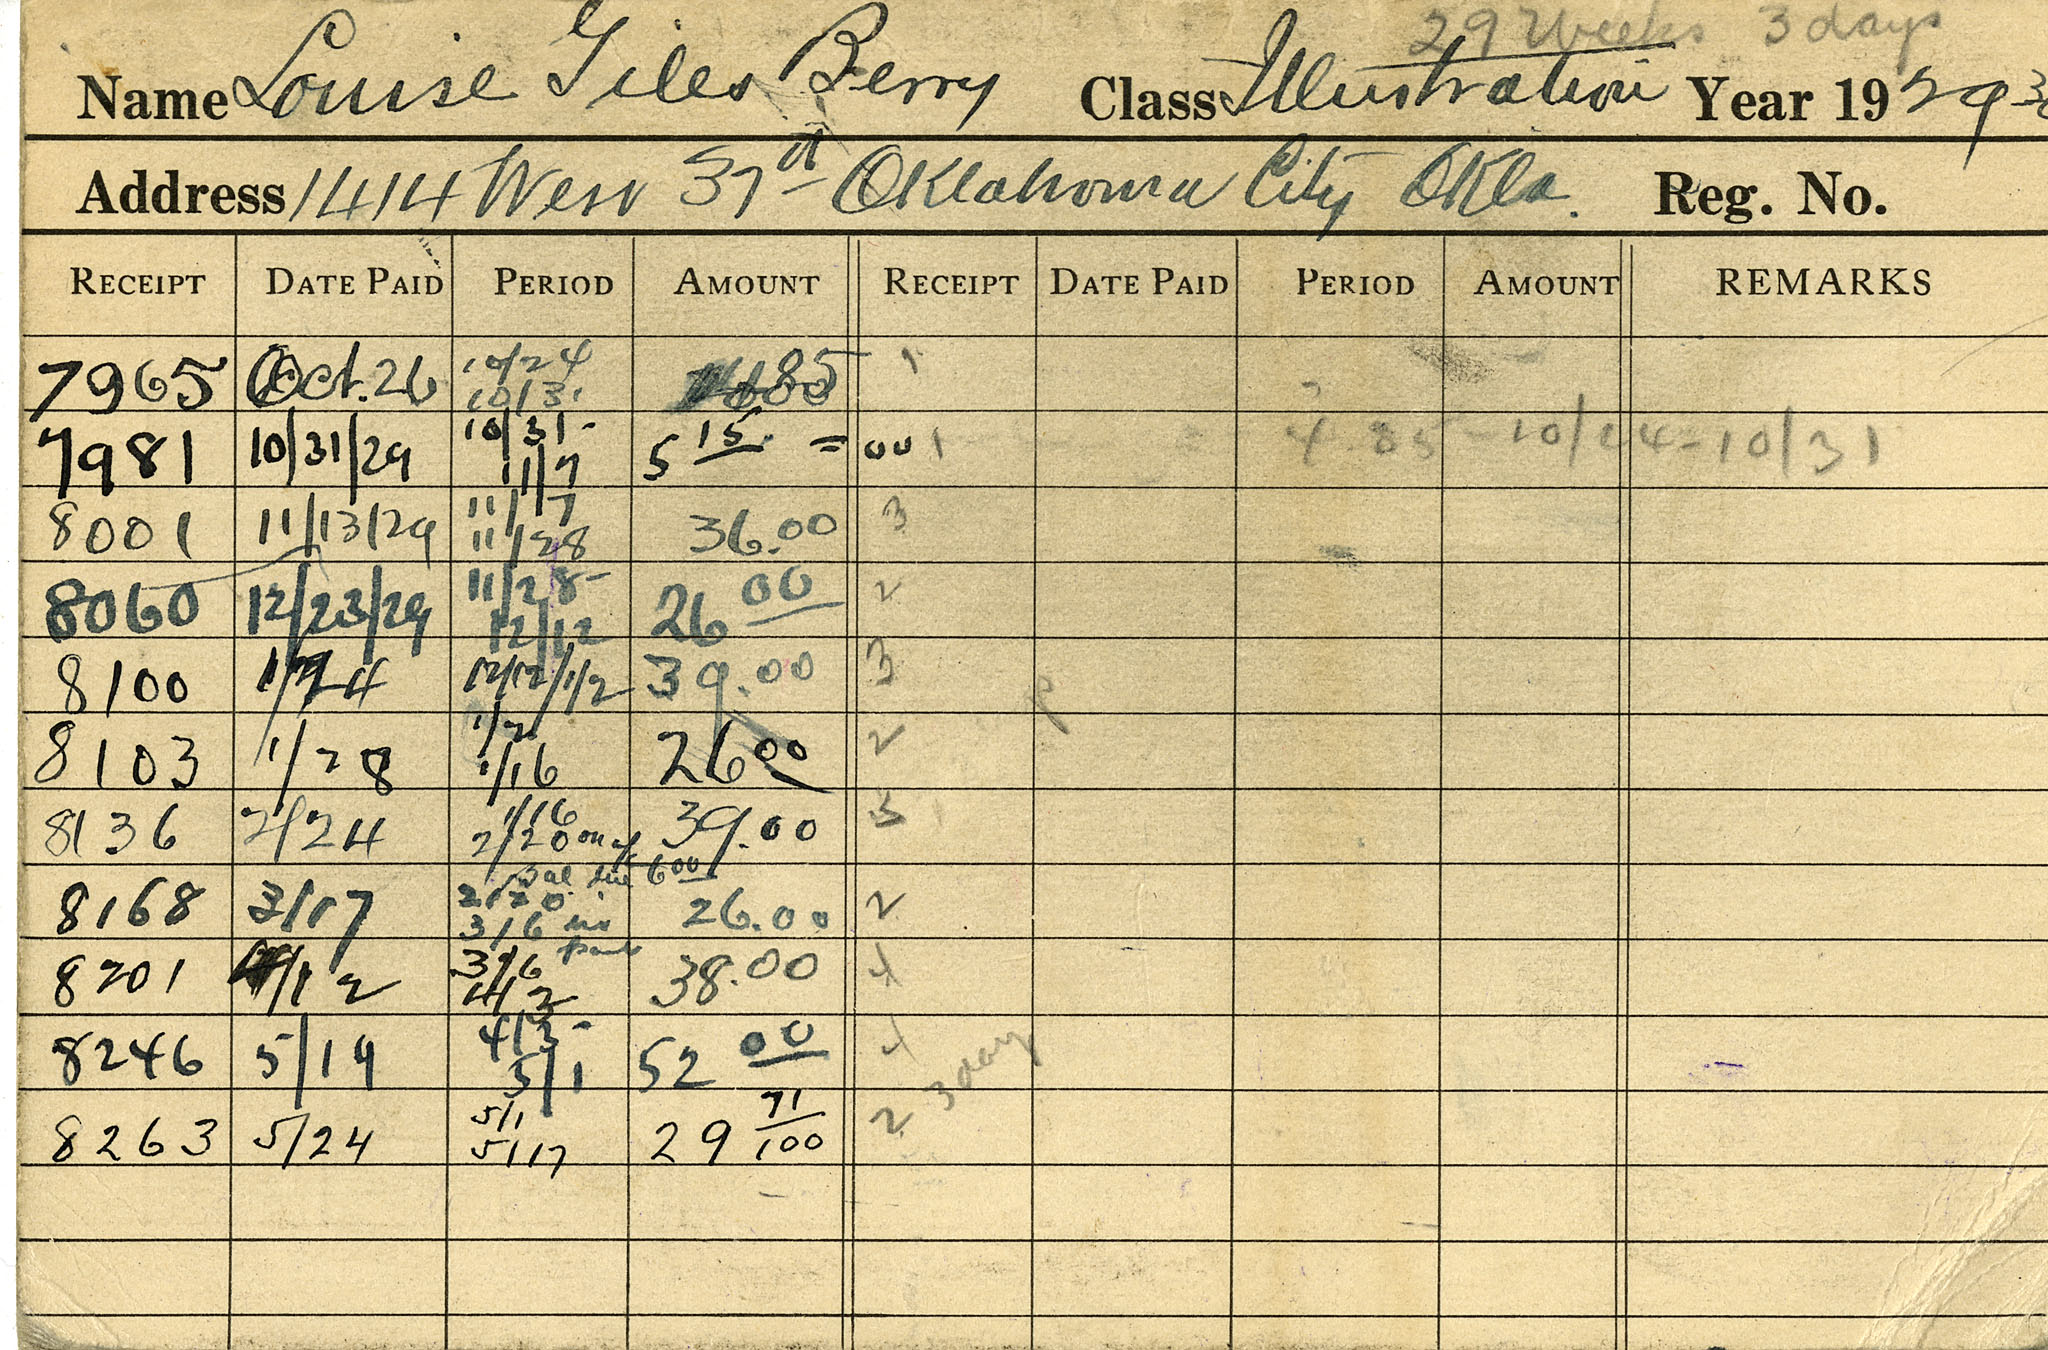 29 Weeks 3 days
Name Louise Giles Berry Class Illustration Year 19 29 30
Address 1414 West 37th Oklahoma City Okla. Reg. No.
RECEIPT DATE PAID PERIOD AMOUNT RECEIPT DATE PAID PERIOD AMOUNT REMARKS
7965 Oct. 26 10/24 10/31 85 1
7981 10/31/29 10/31- 11/7 5 15 = 00 1 4.85 - 10/24 - 10/31
8001 11/13/29 11/7 11/28 36.00 3
8060 12/23/29 11/28- 12/12 26 00 2
8100 1/24 12/12/1/2 39.00 3
8103 1/28 1/2 1/16 26 00 2
8136 2/24 1/16 2/20 on a/c 39.00 3
Bal due 6 00
8168 3/17 2/20 3/6 in part 26.00 2
8201 4/12 3/6 4/2 38.00 4
8246 5/19 4/3- 5/1 52 00 4
8263 5/24 5/1 5/17 29 71/100 2 3 days